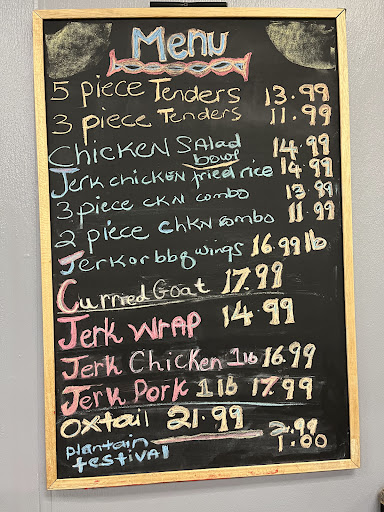 Menu
5 piece Tenders 13.99
3 piece Tenders 11.99
Chicken Salad bowl 14.99
Jerk chicken fried rice 14.99
3 piece ckn combo 13.99
2 piece chkn combo 11.99
Jerk or bbq wings 16.99 lb
Curried Goat 17.99
Jerk Wrap 14.99
Jerk Chicken 1lb 16.99
Jerk Pork 1lb 17.99
Oxtail 21.99
plantain 2.99
festival 1.00